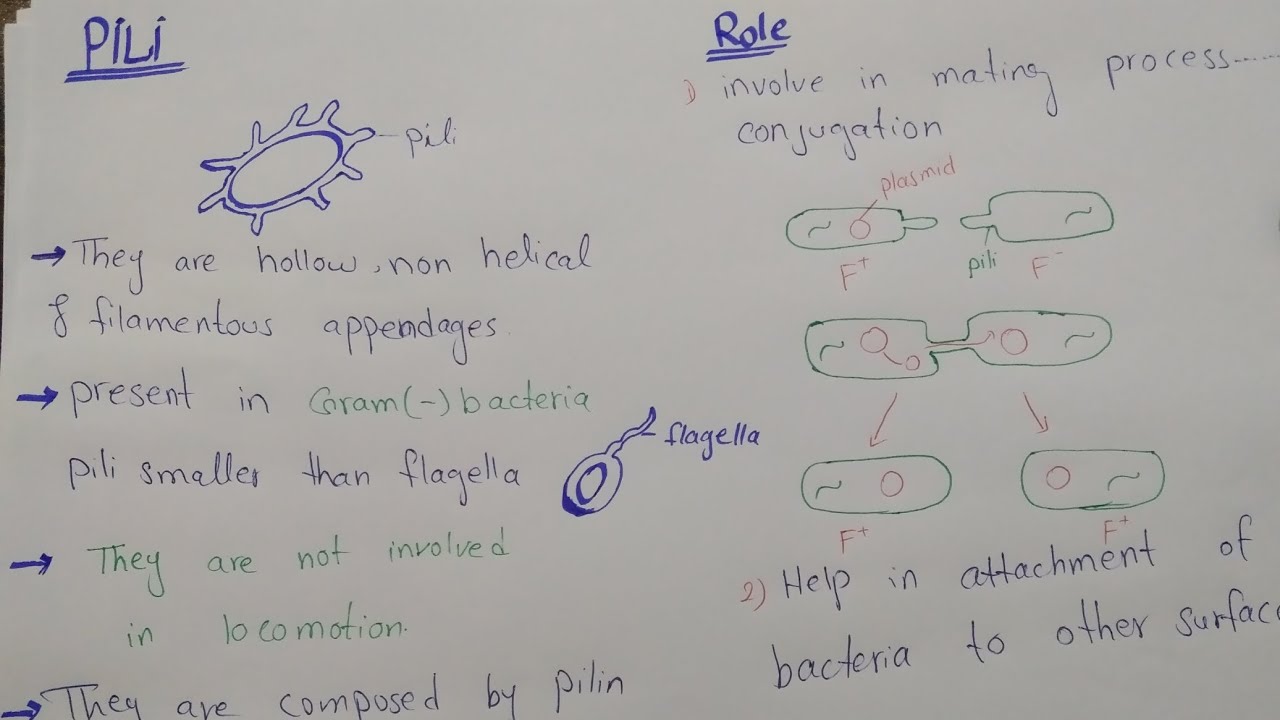 PiLi
pili
→ They are hollow, non helical
& filamentous appendages.
→ present in Gram(-) bacteria
pili smaller than flagella
flagella
→ They are not involved
in locomotion.
→ They are composed by pilin
Role
1) involve in mating process......
conjugation
plasmid
F+
pili
F-
F+
F+
2) Help in attachment of
bacteria to other surfac